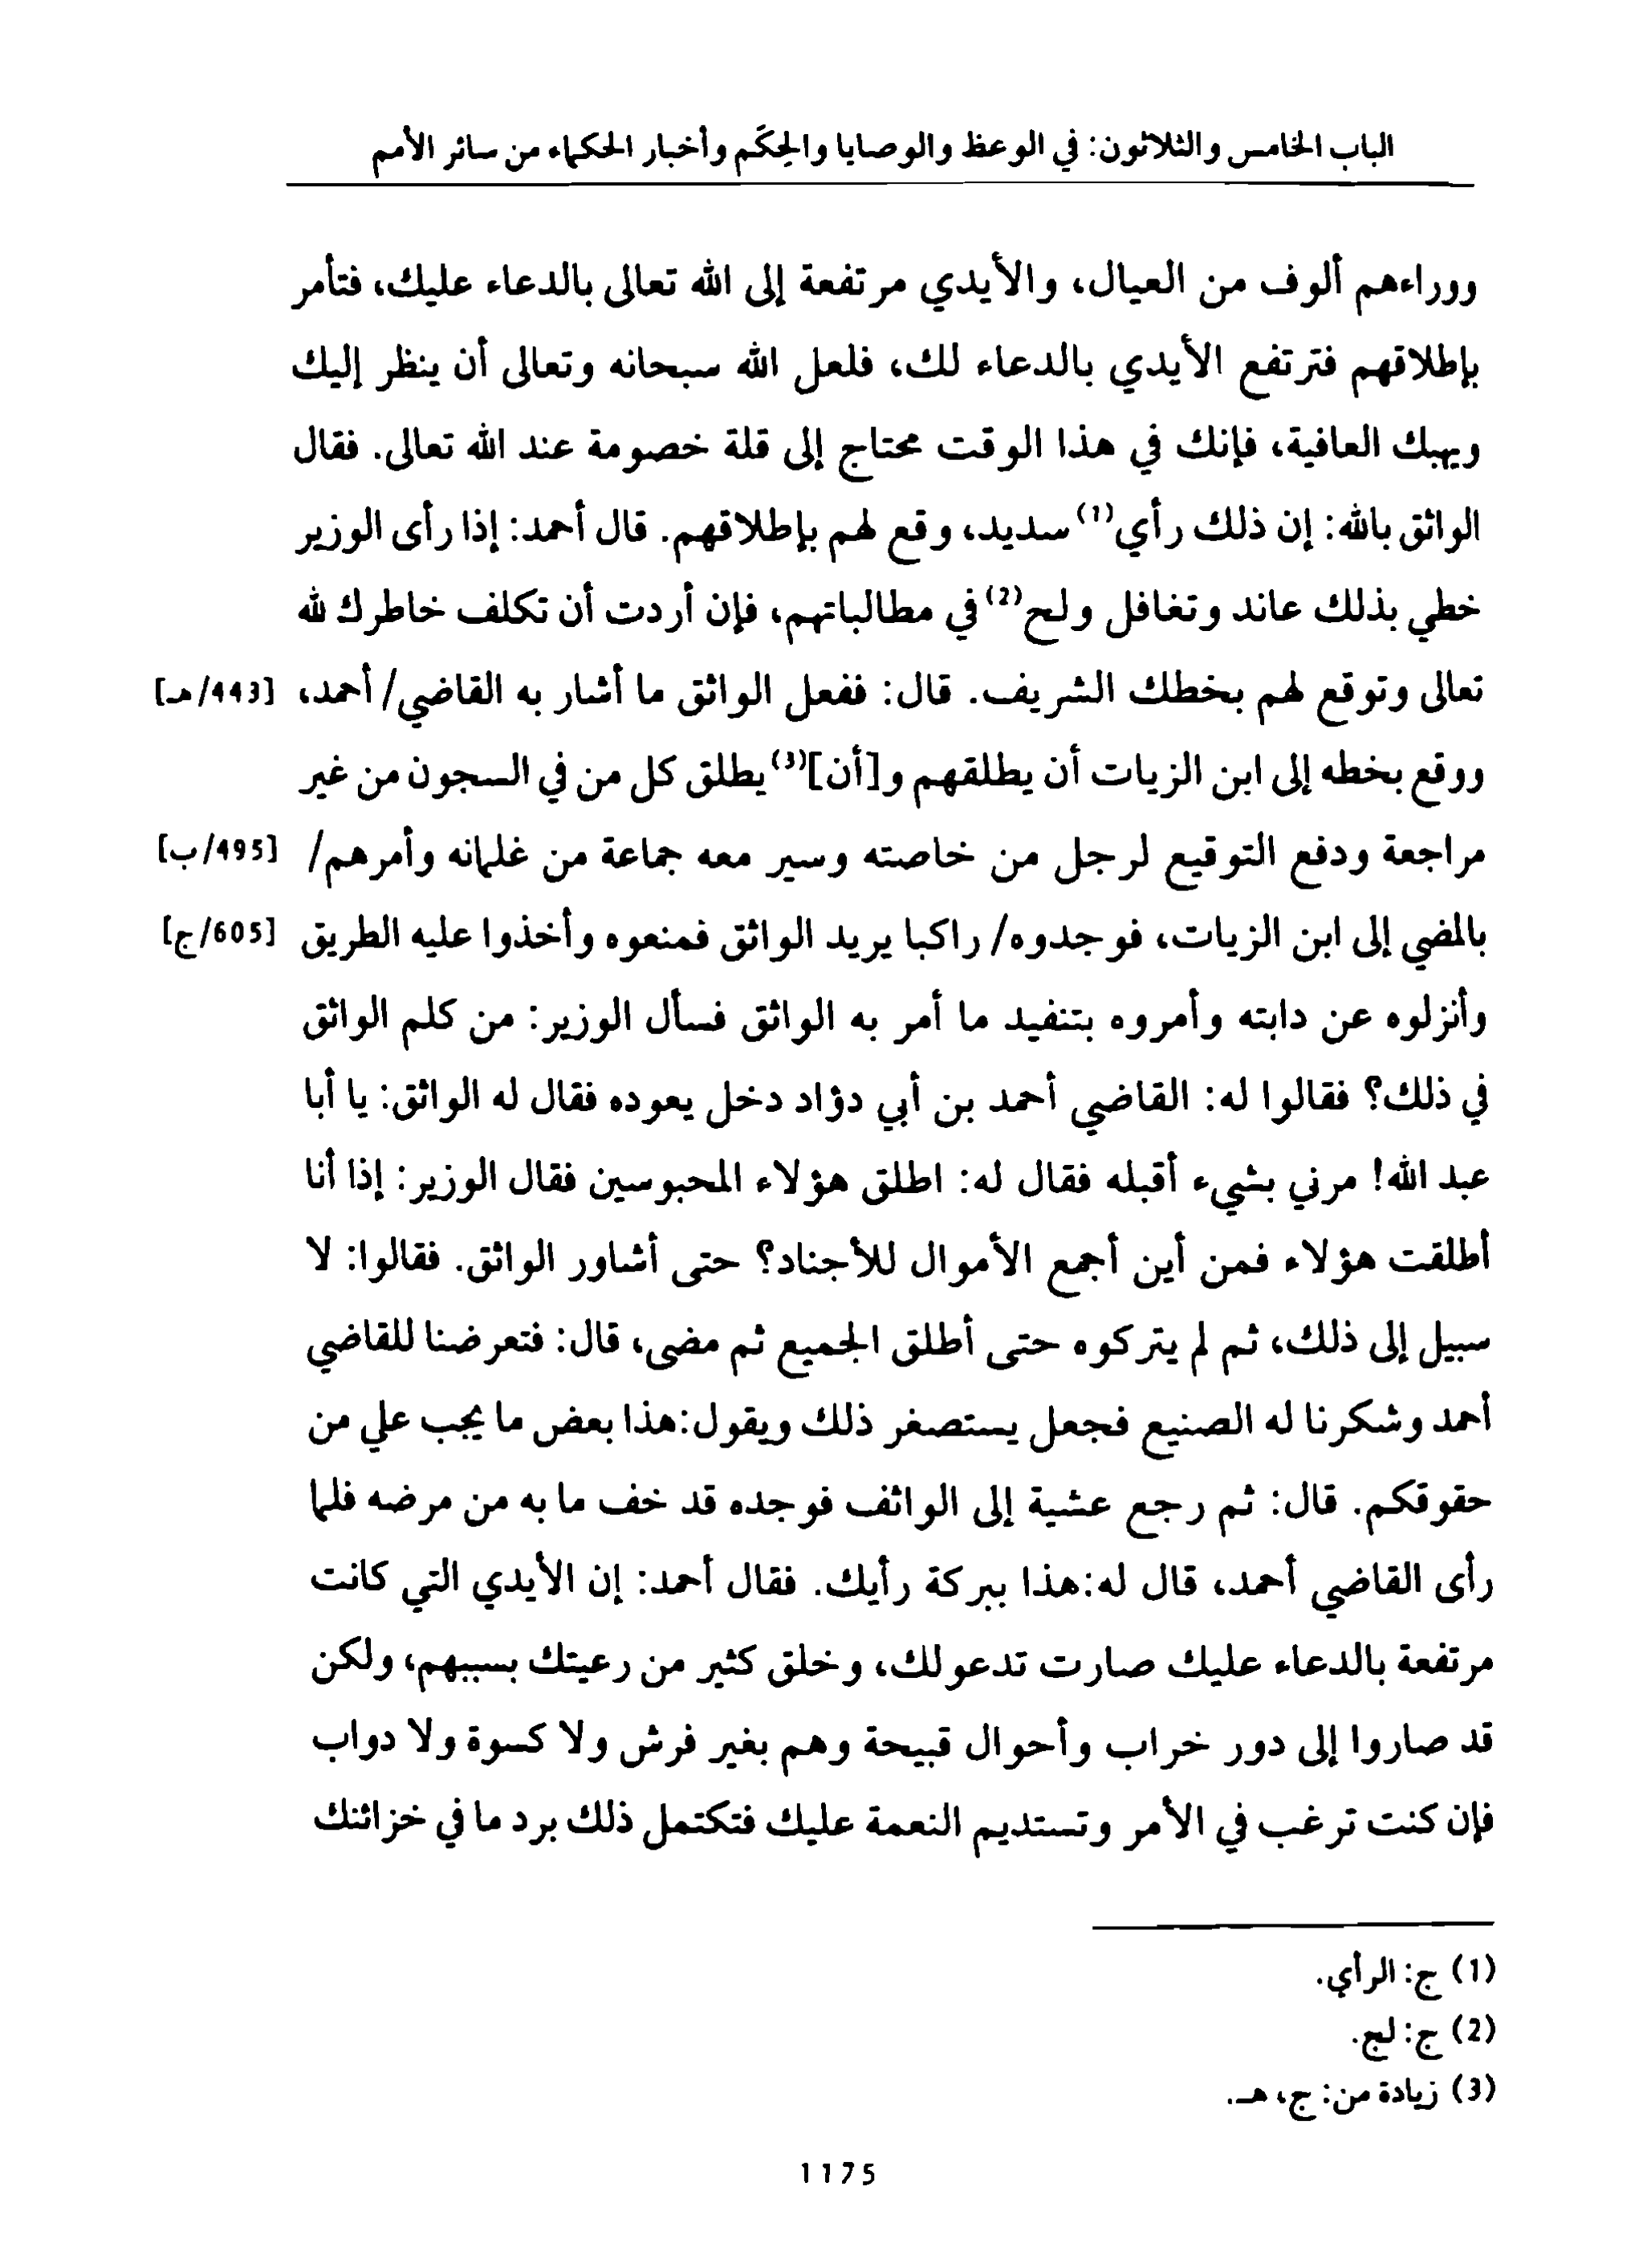 الباب الخامس والثلاثون: في الوعظ والوصايا والحِكَم وأخبار الحكماء من سائر الأمم
ووراءهم ألوف من العيال، والأيدي مرتفعة إلى الله تعالى بالدعاء عليك، فتأمر
بإطلاقهم فترتفع الأيدي بالدعاء لك، فلعل الله سبحانه وتعالى أن ينظر إليك
ويهبك العافية، فإنك في هذا الوقت محتاج إلى قلة خصومة عند الله تعالى. فقال
الواثق بالله: إن ذلك رأي(1) سديد، وقع لهم بإطلاقهم. قال أحمد: إذا رأى الوزير
خطي بذلك عاند وتغافل ولح(2) في مطالباتهم، فإن أردت أن تكلف خاطرك لله
تعالى وتوقع لهم بخطك الشريف. قال: ففعل الواثق ما أشار به القاضي/ أحمد، [443/هـ]
ووقع بخطه إلى ابن الزيات أن يطلقهم و[أن](3) يطلق كل من في السجون من غير
مراجعة ودفع التوقيع لرجل من خاصته وسير معه جماعة من غلمانه وأمرهم/ [495/ب]
بالمضي إلى ابن الزيات، فوجدوه/ راكبا يريد الواثق فمنعوه وأخذوا عليه الطريق [605/ج]
وأنزلوه عن دابته وأمروه بتنفيد ما أمر به الواثق فسأل الوزير: من كلم الواثق
في ذلك؟ فقالوا له: القاضي أحمد بن أبي دؤاد دخل يعوده فقال له الواثق: يا أبا
عبد الله! مرني بشيء أقبله فقال له: اطلق هؤلاء المحبوسين فقال الوزير: إذا أنا
أطلقت هؤلاء فمن أين أجمع الأموال للأجناد؟ حتى أشاور الواثق. فقالوا: لا
سبيل إلى ذلك، ثم لم يتركوه حتى أطلق الجميع ثم مضى، قال: فتعرضنا للقاضي
أحمد وشكرنا له الصنيع فجعل يستصغر ذلك ويقول:هذا بعض ما يجب علي من
حقوقكم. قال: ثم رجع عشية إلى الواثف فوجده قد خف ما به من مرضه فلما
رأى القاضي أحمد، قال له:هذا ببركة رأيك. فقال أحمد: إن الأيدي التي كانت
مرتفعة بالدعاء عليك صارت تدعو لك، وخلق كثير من رعيتك بسببهم، ولكن
قد صاروا إلى دور خراب وأحوال قبيحة وهم بغير فرش ولا كسوة ولا دواب
فإن كنت ترغب في الأمر وتستديم النعمة عليك فتكتمل ذلك برد ما في خزائنك
(1) ج: الرأي.
(2) ج: لج.
(3) زيادة من: ج، هـ.
1175